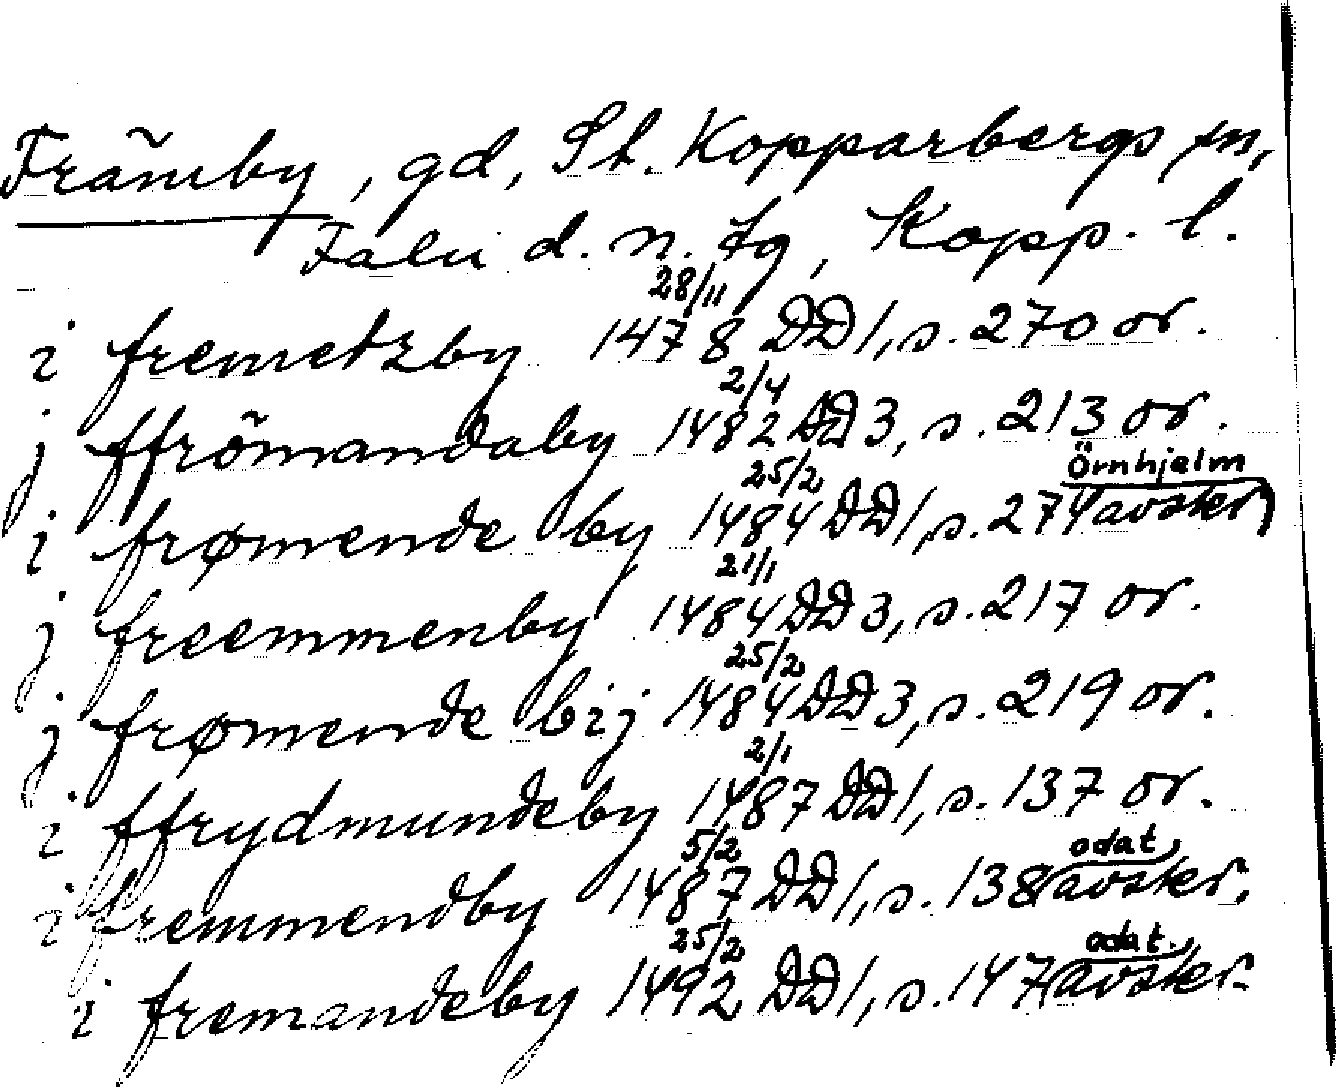 Främby, gd, St. Kopparbergs sn,
Falu d. n. fg, Kopp. l.
i fremetzby 28/11 1478 DD 1, s. 270 or.
j ffrömandaby 2/4 1482 DD 3, s. 213 or.
i frømende by 25/2 1484 DD 1, s. 274 Örnhjelm avskr
j freemmenby 21/1 1484 DD 3, s. 217 or.
j frømende bij 25/2 1484 DD 3, s. 219 or.
i ffrydmundeby 2/1 1487 DD 1, s. 137 or.
i fremmendby 5/2 1487 DD 1, s. 138 odat avskr.
i fremandeby 25/2 1492 DD 1, s. 147 odat. avskr.